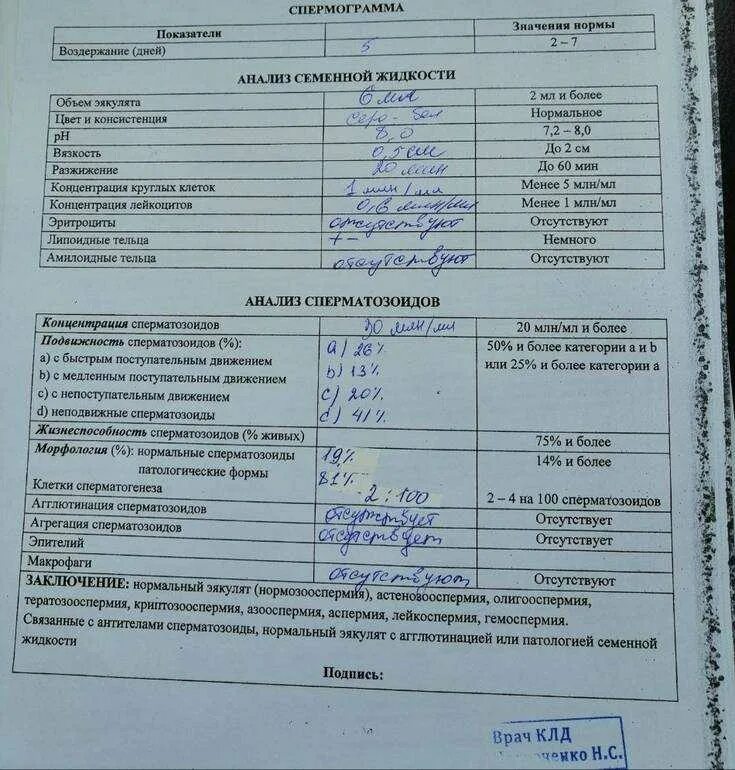 СПЕРМОГРАММА
Показатели Значения нормы
Воздержание (дней) 5 2 – 7
АНАЛИЗ СЕМЕННОЙ ЖИДКОСТИ
Объем эякулята 6 мл 2 мл и более
Цвет и консистенция серо-бел Нормальное
pH 8,0 7,2 – 8,0
Вязкость 0,5 см До 2 см
Разжижение 20 мин До 60 мин
Концентрация круглых клеток 1 млн/мл Менее 5 млн/мл
Концентрация лейкоцитов млн/мл Менее 1 млн/мл
Эритроциты отсутствуют Отсутствуют
Липоидные тельца + – Немного
Амилоидные тельца отсутствуют Отсутствуют
АНАЛИЗ СПЕРМАТОЗОИДОВ
Концентрация сперматозоидов млн/мл 20 млн/мл и более
Подвижность сперматозоидов (%): 50% и более категории a и b
a) с быстрым поступательным движением a) 26% или 25% и более категории a
b) с медленным поступательным движением b) 13%
c) с непоступательным движением c) 20%
d) неподвижные сперматозоиды d) 41%
Жизнеспособность сперматозоидов (% живых) 75% и более
Морфология (%): нормальные сперматозоиды 19% 14% и более
патологические формы 81%
Клетки сперматогенеза 2 : 100 2 – 4 на 100 сперматозоидов
Агглютинация сперматозоидов отсутствует Отсутствует
Агрегация сперматозоидов отсутствует Отсутствует
Эпителий
Макрофаги отсутствуют Отсутствуют
ЗАКЛЮЧЕНИЕ: нормальный эякулят (нормозооспермия), астенозооспермия, олигооспермия,
тератозооспермия, криптозооспермия, азооспермия, аспермия, лейкоспермия, гемоспермия.
Связанные с антителами сперматозоиды, нормальный эякулят с агглютинацией или патологией семенной
жидкости
Подпись:
Врач КЛД
Н.С.